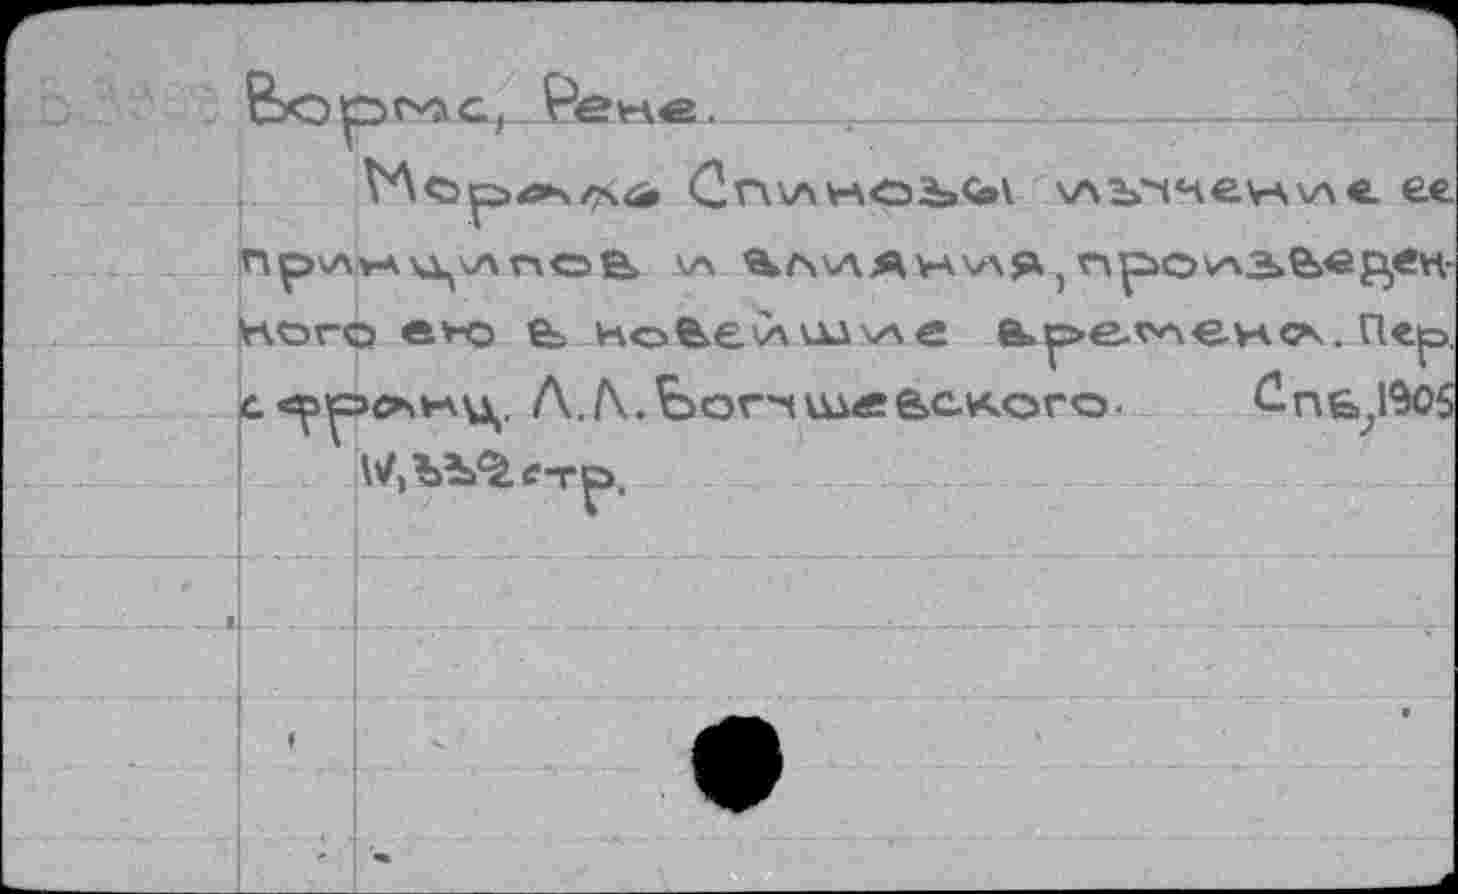 Вормс, Рене.
Мораль Спинозы изучение ее
принципов и влияния, произведен-
ного ею в новейшие времена. Пер.
с франц. Л.Л. Богушевского. Спб, 1905
IV, 332 стр.